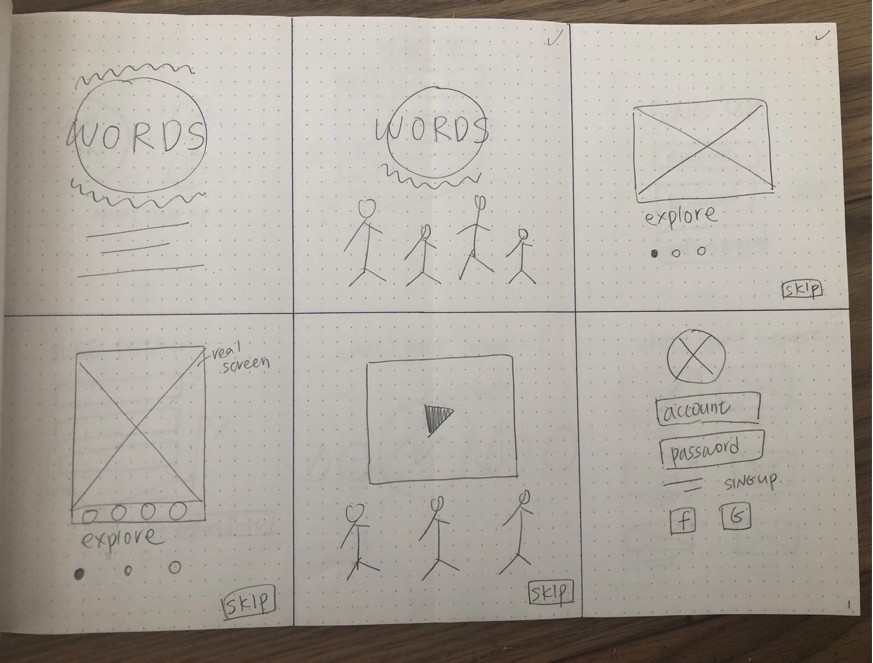 WORDS
WORDS
explore
skip
real
screen
explore
skip
skip
account
password
SINGUP
f
G
1